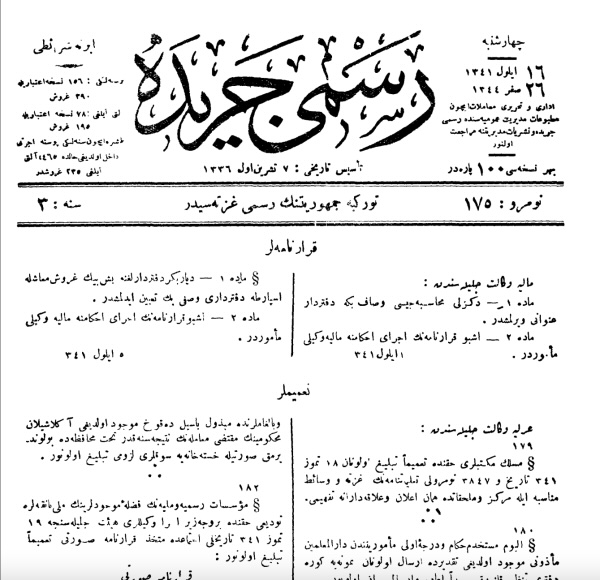 چهارشنبه
١٦ ایلول ١٣٤١
٢٦ صفر ١٣٤٤
اداری و تحریری معاملات ایچون
مطبوعات مدیریت عمومیه‌سنده رسمی
جریده و نشریات مدیریتنه مراجعت
اولنور
بهر نسخه‌سی ١٠٠ پاره‌در
رسمی جریده
تأسیس تاریخی : ٧ تشرین اول ١٣٣٦
ابونه شرائطی
سنه‌لكی : ١٥٦ نسخه اعتباریله
٣٩٠ غروش
التی آیلغی : ٧٨ نسخه اعتباریله
١٩٥ غروش
ایچون سنه‌لكی پوسته اجرتی
داخل اولدیغی حالده ٤٦٥ آلتی
آیلغی ٢٣٥ غروشدر
نومرو : ١٧٥
توركیه جمهوریتنك رسمی غزته‌سیدر
سنه : ٣
قرارنامه‌لر
مالیه وكالت جلیله‌سندن :
ماده ١ — دكزلی محاسبه‌جیسی وصاف بكه دفتردار
عنوانی ویرلمشدر .
ماده ٢ — اشبو قرارنامه‌نك اجرای احكامنه مالیه وكیلی
مأموردر . ١ ایلول ٣٤١
§ ماده ١ — دیاربكر دفتردارلغنه بش بیك غروش معاشله
دفترداری وصفی بك تعیین ایدلمشدر .
ماده ٢ — اشبو قرارنامه‌نك اجرای احكامنه مالیه وكیلی
مأموردر .
٥ ایلول ٣٤١
تعمیملر
عدلیه وكالت جلیله‌سندن :
١٧٩
§ مسلك مكتبلری حقنده تعمیماً تبلیغ اولونان ١٨ تموز
٣٤١ تاریخ و ٣٨٤٧ نومرولی تبلیغنامه‌نك غزته و وسائط
مناسبه ایله مركز وملحقاتده همان اعلان وعلاقه‌دارانه تفهیمی .
١٨٠
§ الیوم مستخدم حكام ودرجهٔ اولی مأمورینندن دارالمعلمین
مأذونی موجود اولدیغی تقدیرده ارسال اولونان نمونه‌یه كوره
موجود اولدیغی آكلاشیلان
محكومینك مقتضی معامله‌نك نتیجه‌سنه قدر تحت محافظه‌ده بولوند-
یرمق صورتیله خسته‌خانه‌یه سوقلری لزومی تبلیغ اولونور .
١٨٢
§ مؤسسات رسمیه ومایه‌نك فضله موجودلرینك ملی بانقه‌لره
تودیعی حقنده بروجه زیر ا را وكیللری هیئت جلیله‌سنجه ١٩
تموز ٣٤١ تاریخلی اجتماعده متخذ قرارنامه صورتی تعمیماً
تبلیغ اولونور :
قرارنامه صورتی